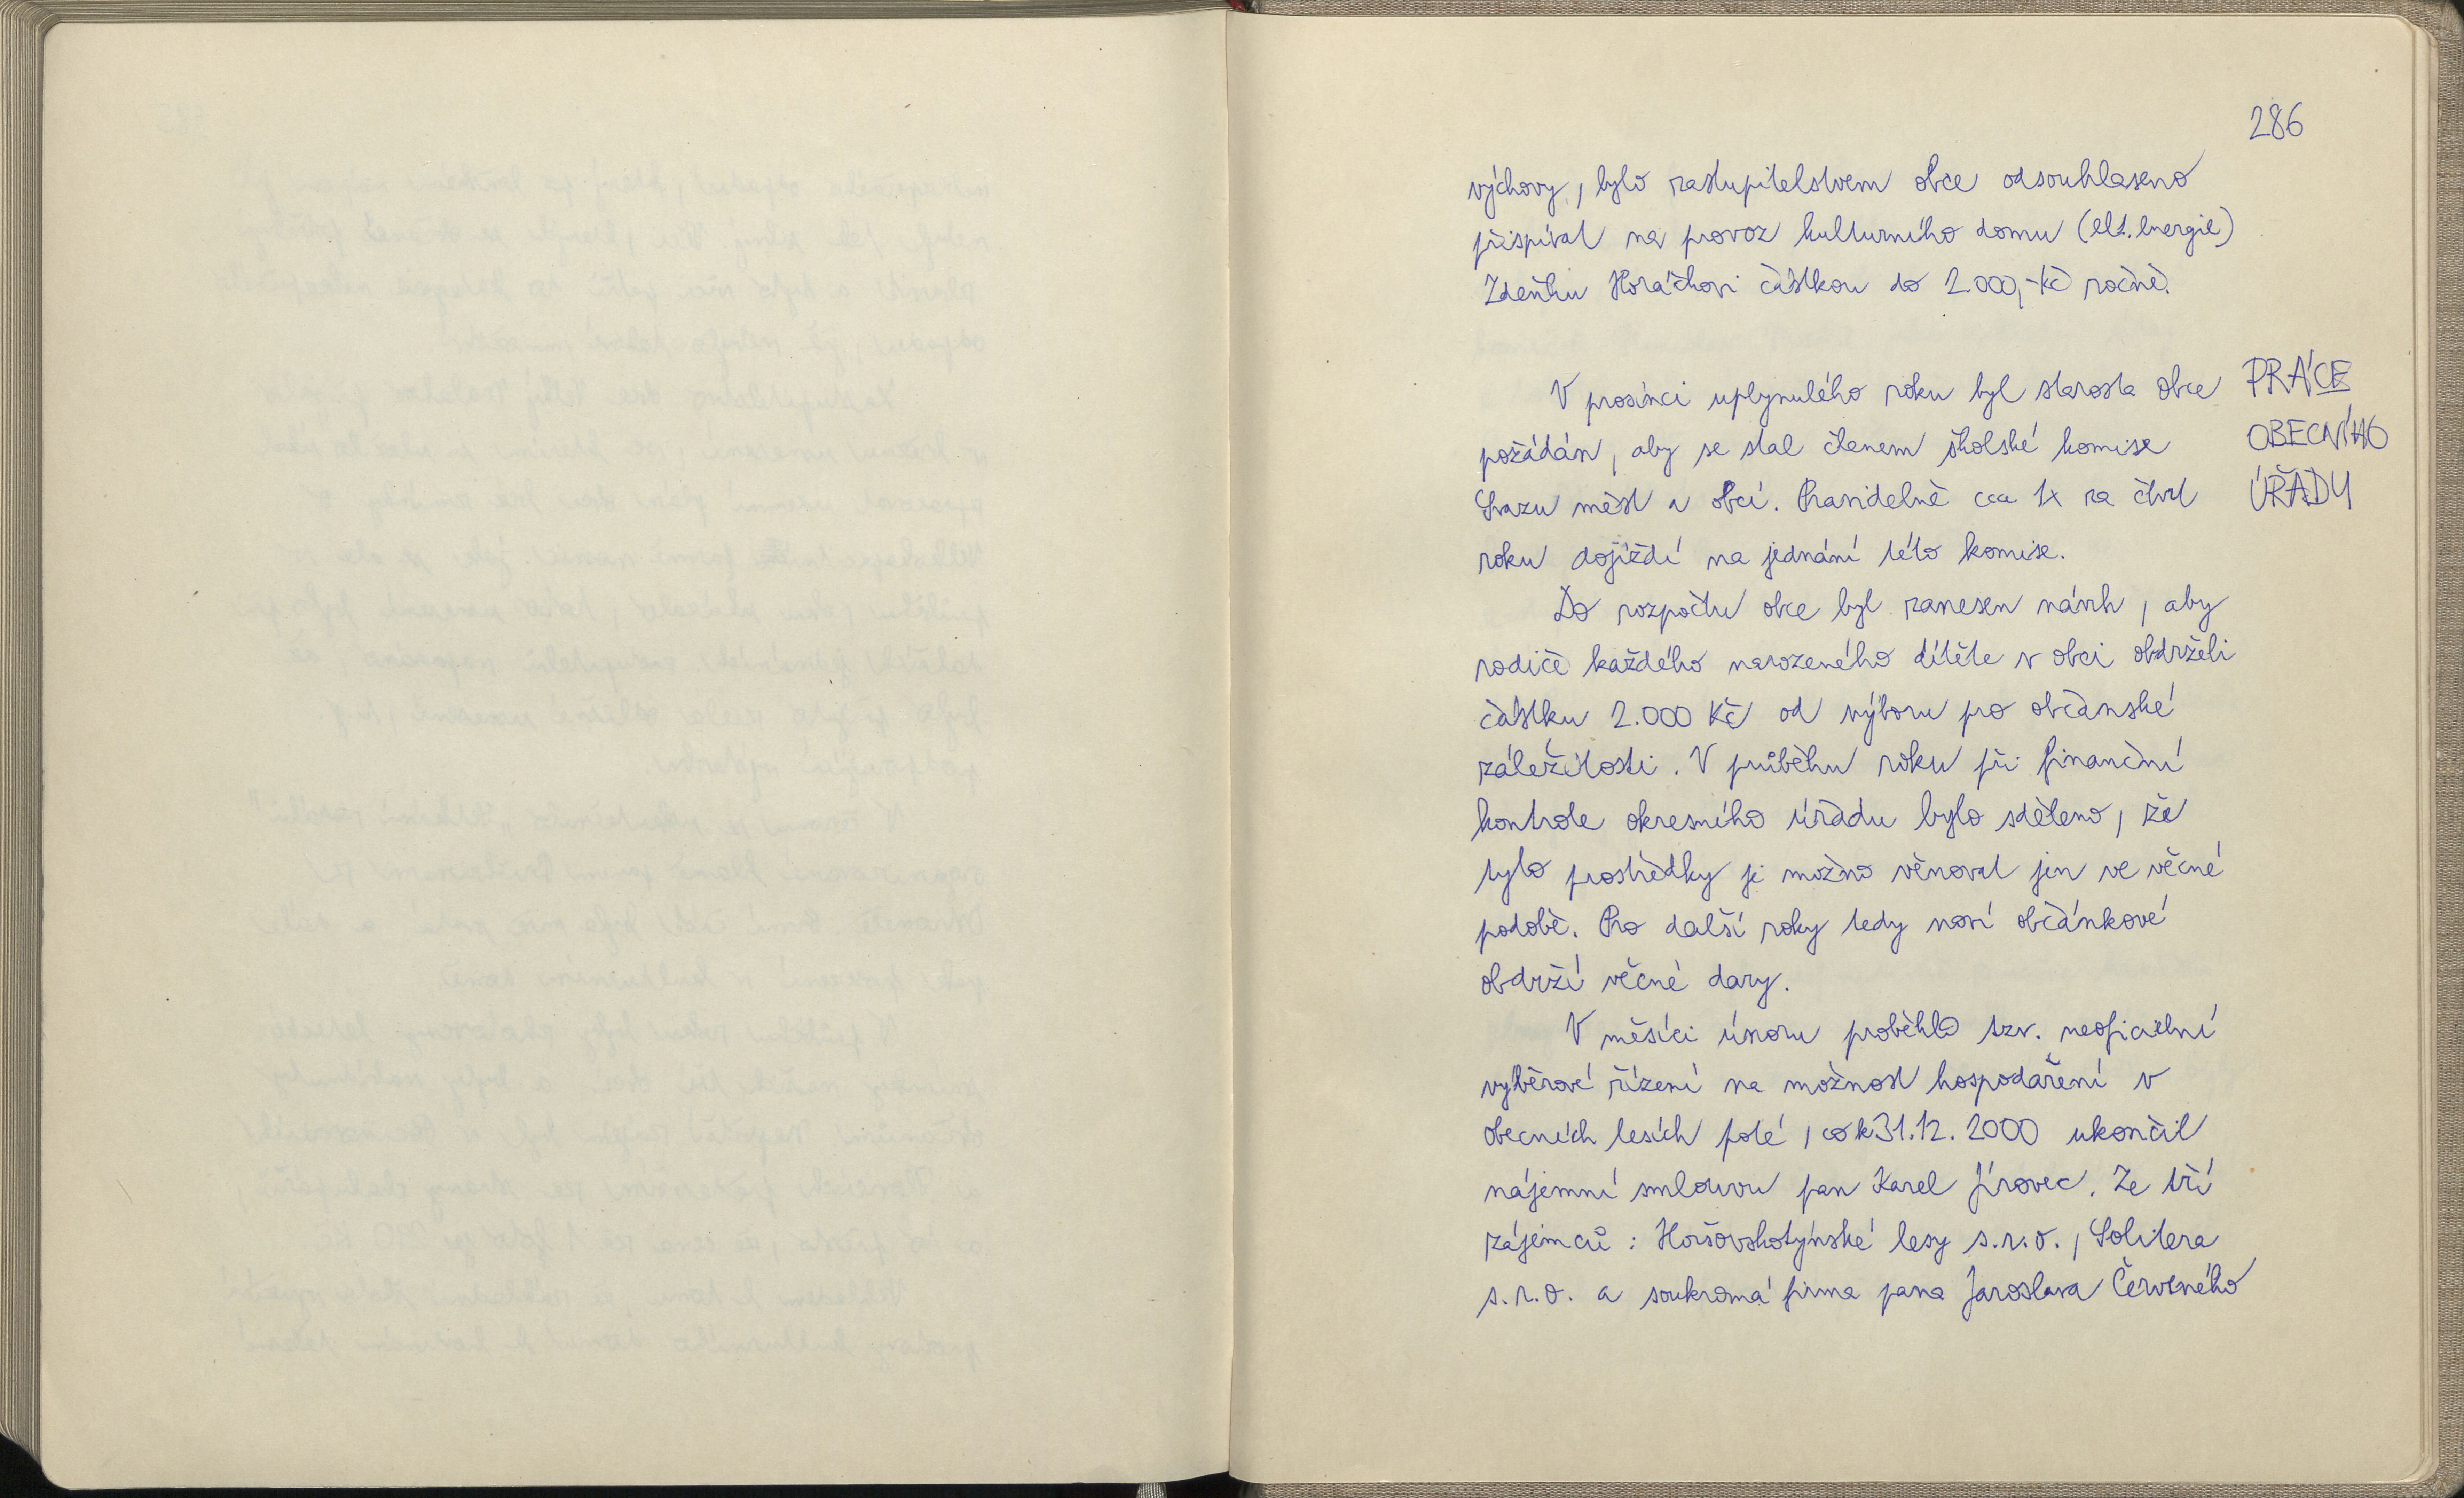 286
výchovy, bylo zastupitelstvem obce odsouhlaseno
přispívat na provoz kulturního domu (elt. energie)
Zdeňku Horáčkovi částkou do 2.000,- Kč ročně.
PRÁCE
OBECNÍHO
ÚŘADU
V prosinci uplynulého roku byl starosta obce
požádán, aby se stal členem školské komise
Svazu měst a obcí. Pravidelně cca 1x za čtvrt
roku dojíždí na jednání této komise.
Do rozpočtu obce byl zanesen návrh, aby
rodiče každého narozeného dítěte v obci obdrželi
částku 2.000 Kč od výboru pro občanské
záležitosti. V průběhu roku při finanční
kontrole okresního úřadu bylo sděleno, že
tyto prostředky je možno věnovat jen ve věcné
podobě. Pro další roky tedy noví občánkové
obdrží věcné dary.
V měsíci únoru proběhlo tzv. neoficielní
výběrové řízení na možnost hospodaření v
obecních lesích poté, co k 31.12. 2000 ukončil
nájemní smlouvu pan Karel Jírovec. Ze tří
zájemců: Horšovskotýnské lesy s.r.o., Solitera
s.r.o. a soukromá firma pana Jaroslava Červeného